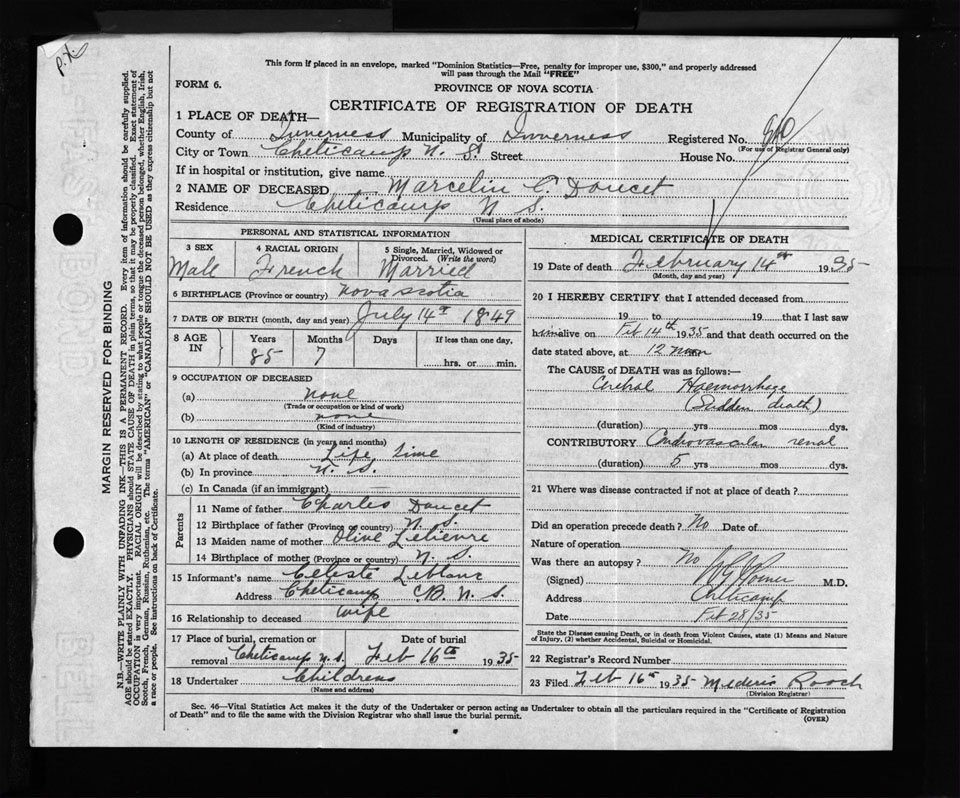 P.X.
This form if placed in an envelope, marked "Dominion Statistics—Free, penalty for improper use, $300," and properly addressed
will pass through the Mail "FREE"
FORM 6.
PROVINCE OF NOVA SCOTIA
CERTIFICATE OF REGISTRATION OF DEATH
1 PLACE OF DEATH—
County of Inverness Municipality of Inverness Registered No.
(For use of Registrar General only)
City or Town Cheticamp N. S. Street House No.
If in hospital or institution, give name
2 NAME OF DECEASED Marcelin C. Doucet
Residence Cheticamp N. S.
(Usual place of abode)
PERSONAL AND STATISTICAL INFORMATION
3 SEX 4 RACIAL ORIGIN 5 Single, Married, Widowed or
Divorced. (Write the word)
Male French Married
6 BIRTHPLACE (Province or country) Nova Scotia
7 DATE OF BIRTH (month, day and year) July 14th 1849
8 AGE IN Years Months Days If less than one day,
85 7 hrs. or min.
9 OCCUPATION OF DECEASED
(a) none
(Trade or occupation or kind of work)
(b) none
(Kind of industry)
10 LENGTH OF RESIDENCE (in years and months)
(a) At place of death Life time
(b) In province N. S.
(c) In Canada (if an immigrant)
Parents
11 Name of father Charles Doucet
12 Birthplace of father (Province or country) N. S.
13 Maiden name of mother Olive Lelievre
14 Birthplace of mother (Province or country) N. S.
15 Informant's name Celeste Leblanc
Address Cheticamp C.B. N. S.
16 Relationship to deceased wife
17 Place of burial, cremation or Date of burial
removal Cheticamp N. S. Feb 16th 1935
18 Undertaker Childrens
(Name and address)
MEDICAL CERTIFICATE OF DEATH
19 Date of death February 14th 1935
(Month, day and year)
20 I HEREBY CERTIFY that I attended deceased from
19 to 19 that I last saw
him alive on Feb 14th 1935 and that death occurred on the
date stated above, at 12 noon
The CAUSE of DEATH was as follows:—
Cerebral Haemorrhage
(Sudden death)
(duration) yrs mos dys.
CONTRIBUTORY Cardiovascular renal
(duration) 5 yrs mos dys.
21 Where was disease contracted if not at place of death?
Did an operation precede death? No Date of
Nature of operation
Was there an autopsy? No
(Signed) M.D.
Address Cheticamp
Date Feb 28/35
State the Disease causing Death, or in death from Violent Causes, state (1) Means and Nature
of Injury, (2) whether Accidental, Suicidal or Homicidal.
22 Registrar's Record Number
23 Filed Feb 16th 1935 Mederic Rooch
(Division Registrar)
Sec. 46—Vital Statistics Act makes it the duty of the Undertaker or person acting as Undertaker to obtain all the particulars required in the "Certificate of Registration
of Death" and to file the same with the Division Registrar who shall issue the burial permit.
(OVER)
MARGIN RESERVED FOR BINDING
N.B.—WRITE PLAINLY WITH UNFADING INK—THIS IS A PERMANENT RECORD. Every item of information should be carefully supplied.
AGE should be stated EXACTLY. PHYSICIANS should STATE CAUSE OF DEATH in plain terms, so that it may be properly classified. Exact statement of
OCCUPATION is very important. RACIAL ORIGIN will be described by stating to what people or tongue the deceased person belonged, whether English, Irish,
Scotch, French, German, Russian, Ruthenian, etc. The terms "AMERICAN" or "CANADIAN" SHOULD NOT BE USED as they express citizenship but not
a race or people. See instructions on back of Certificate.